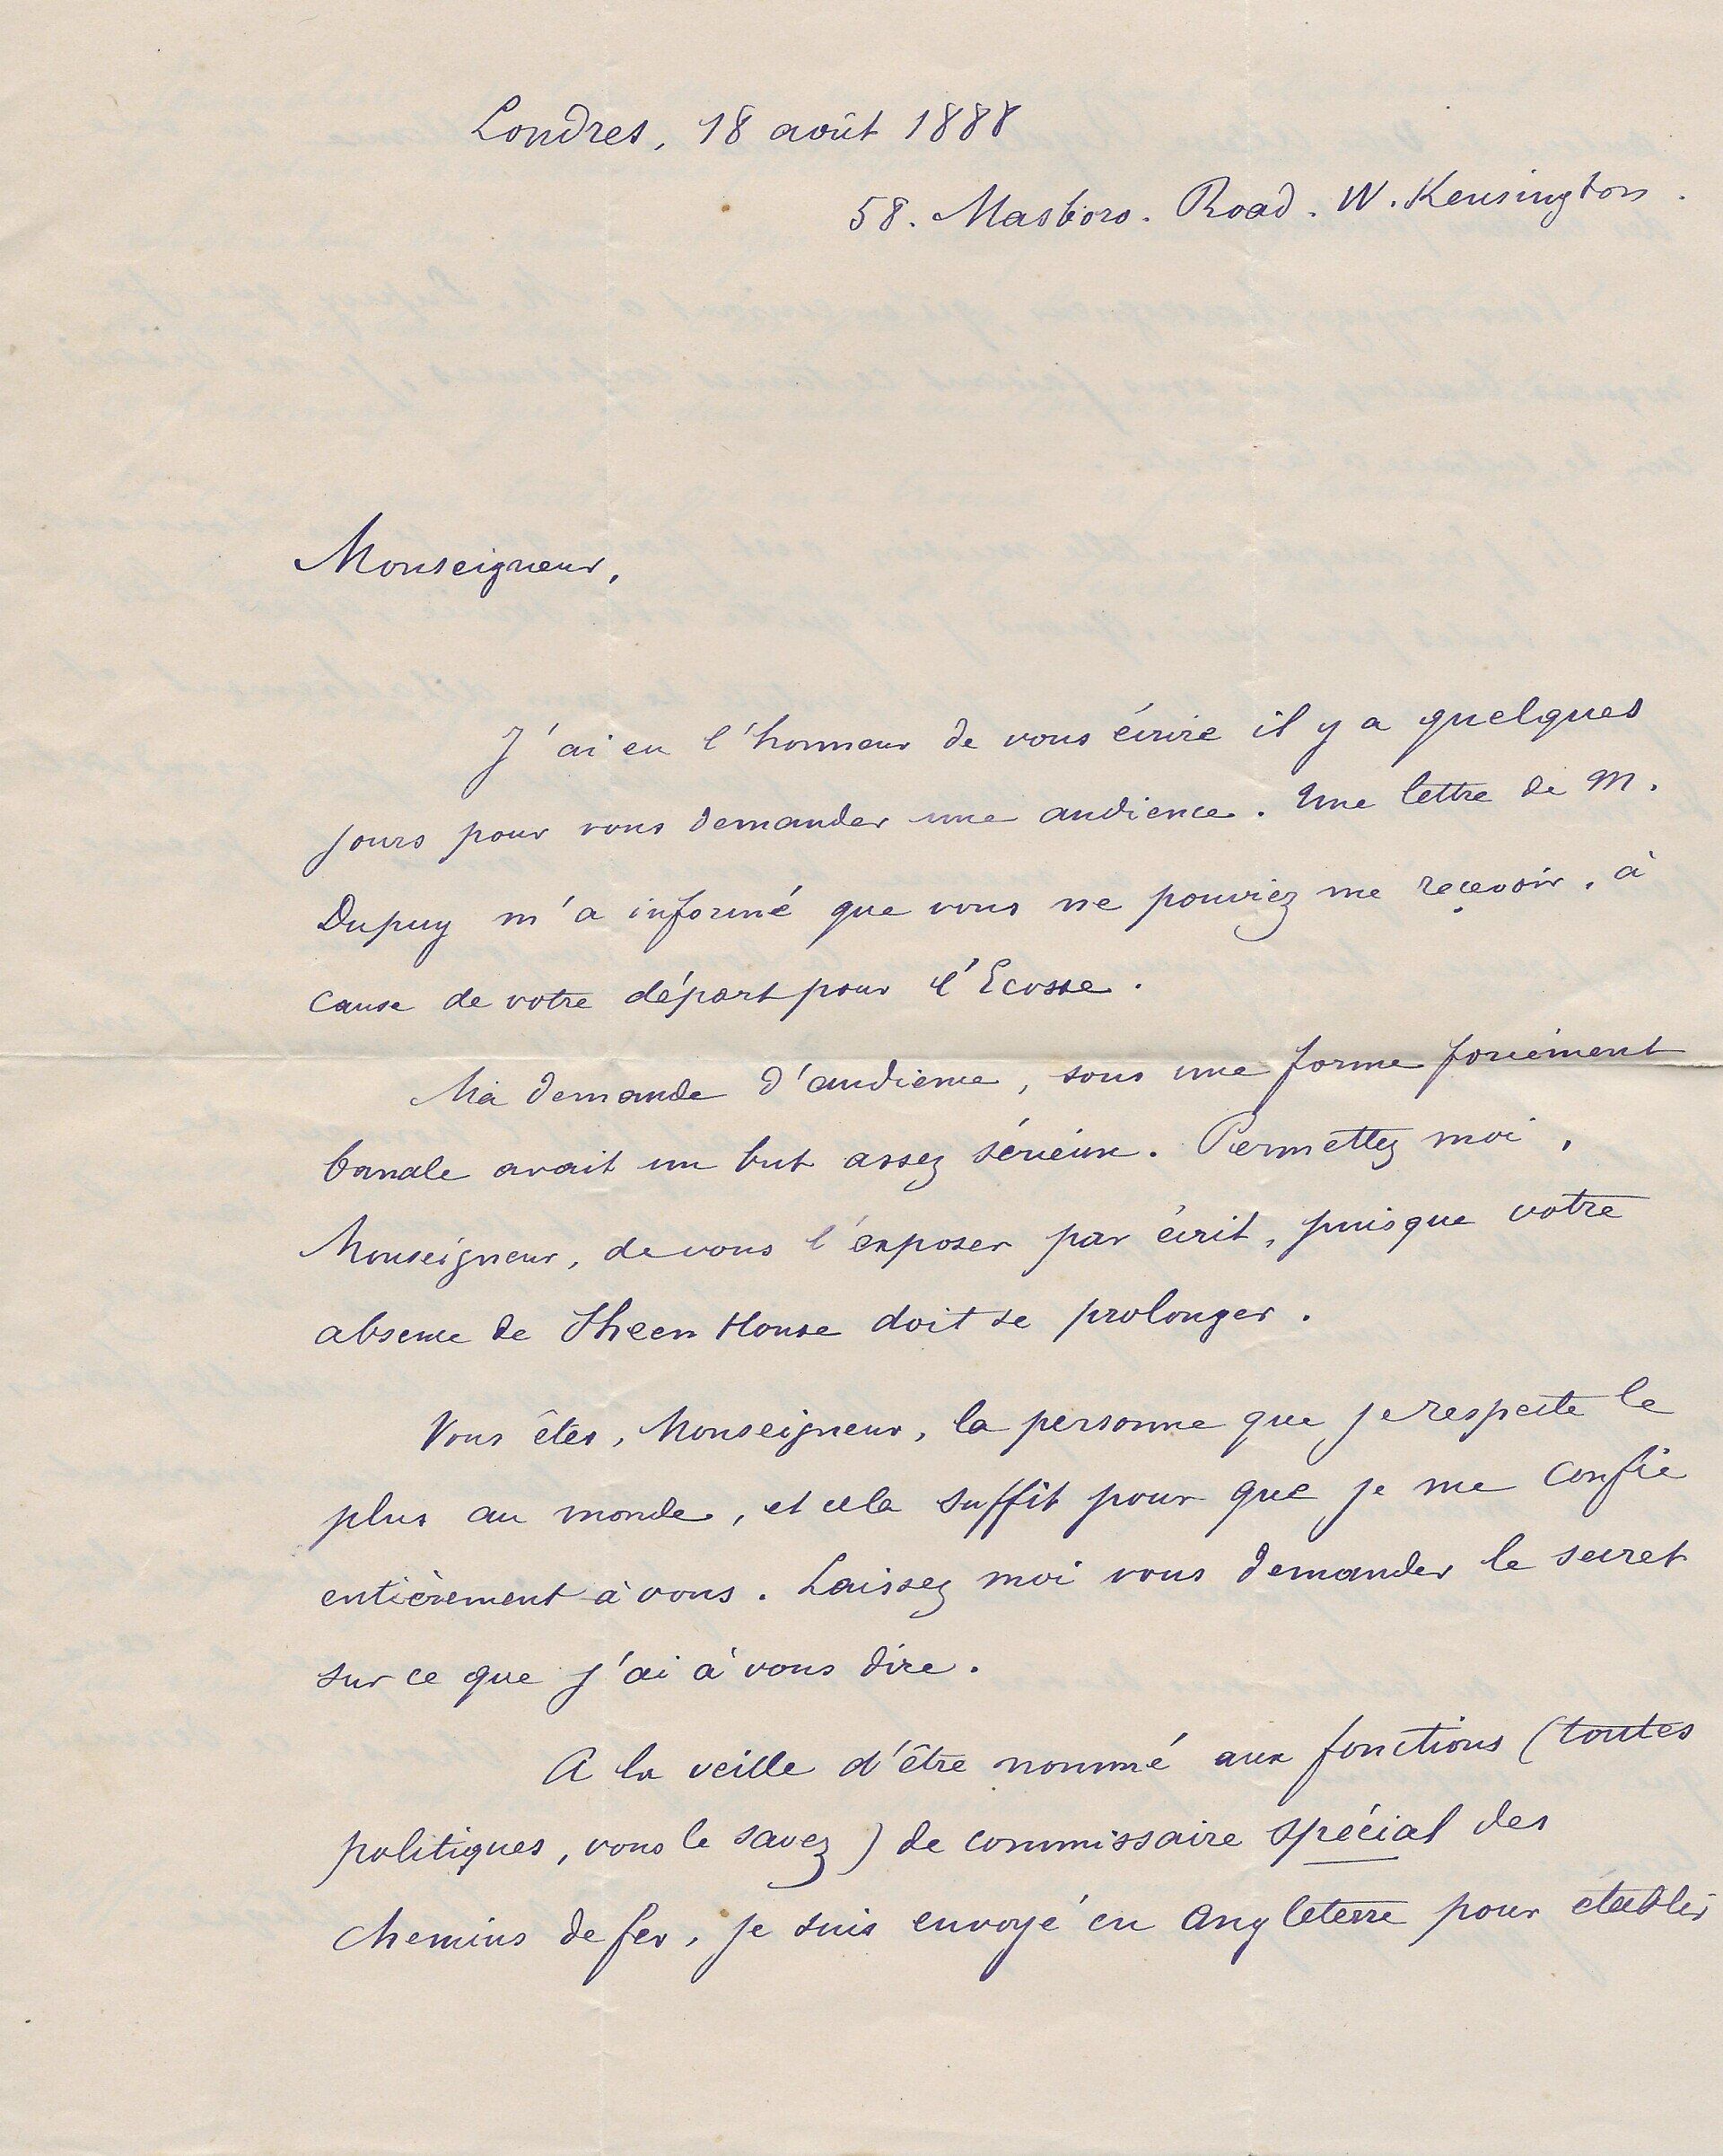 Londres, 18 août 1888
58. Masboro. Road. W. Kensington.
Monseigneur,
J'ai eu l'honneur de vous écrire il y a quelques
jours pour vous demander une audience. Une lettre de M.
Dupuy m'a informé que vous ne pouviez me reçevoir, à
cause de votre départ pour l'Ecosse.
Ma demande d'audience, sous une forme forcément
banale avait un but assez sérieux. Permettez moi,
Monseigneur, de vous l'exposer par écrit, puisque votre
absence de Sheen House doit se prolonger.
Vous êtes, Monseigneur, la personne que je respecte le
plus au monde, et cela suffit pour que je me confie
entièrement à vous. Laissez moi vous demander le secret
sur ce que j'ai à vous dire.
A la veille d'être nommé aux fonctions (toutes
politiques, vous le savez) de commissaire spécial des
chemins de fer, je suis envoyé en Angleterre pour établir